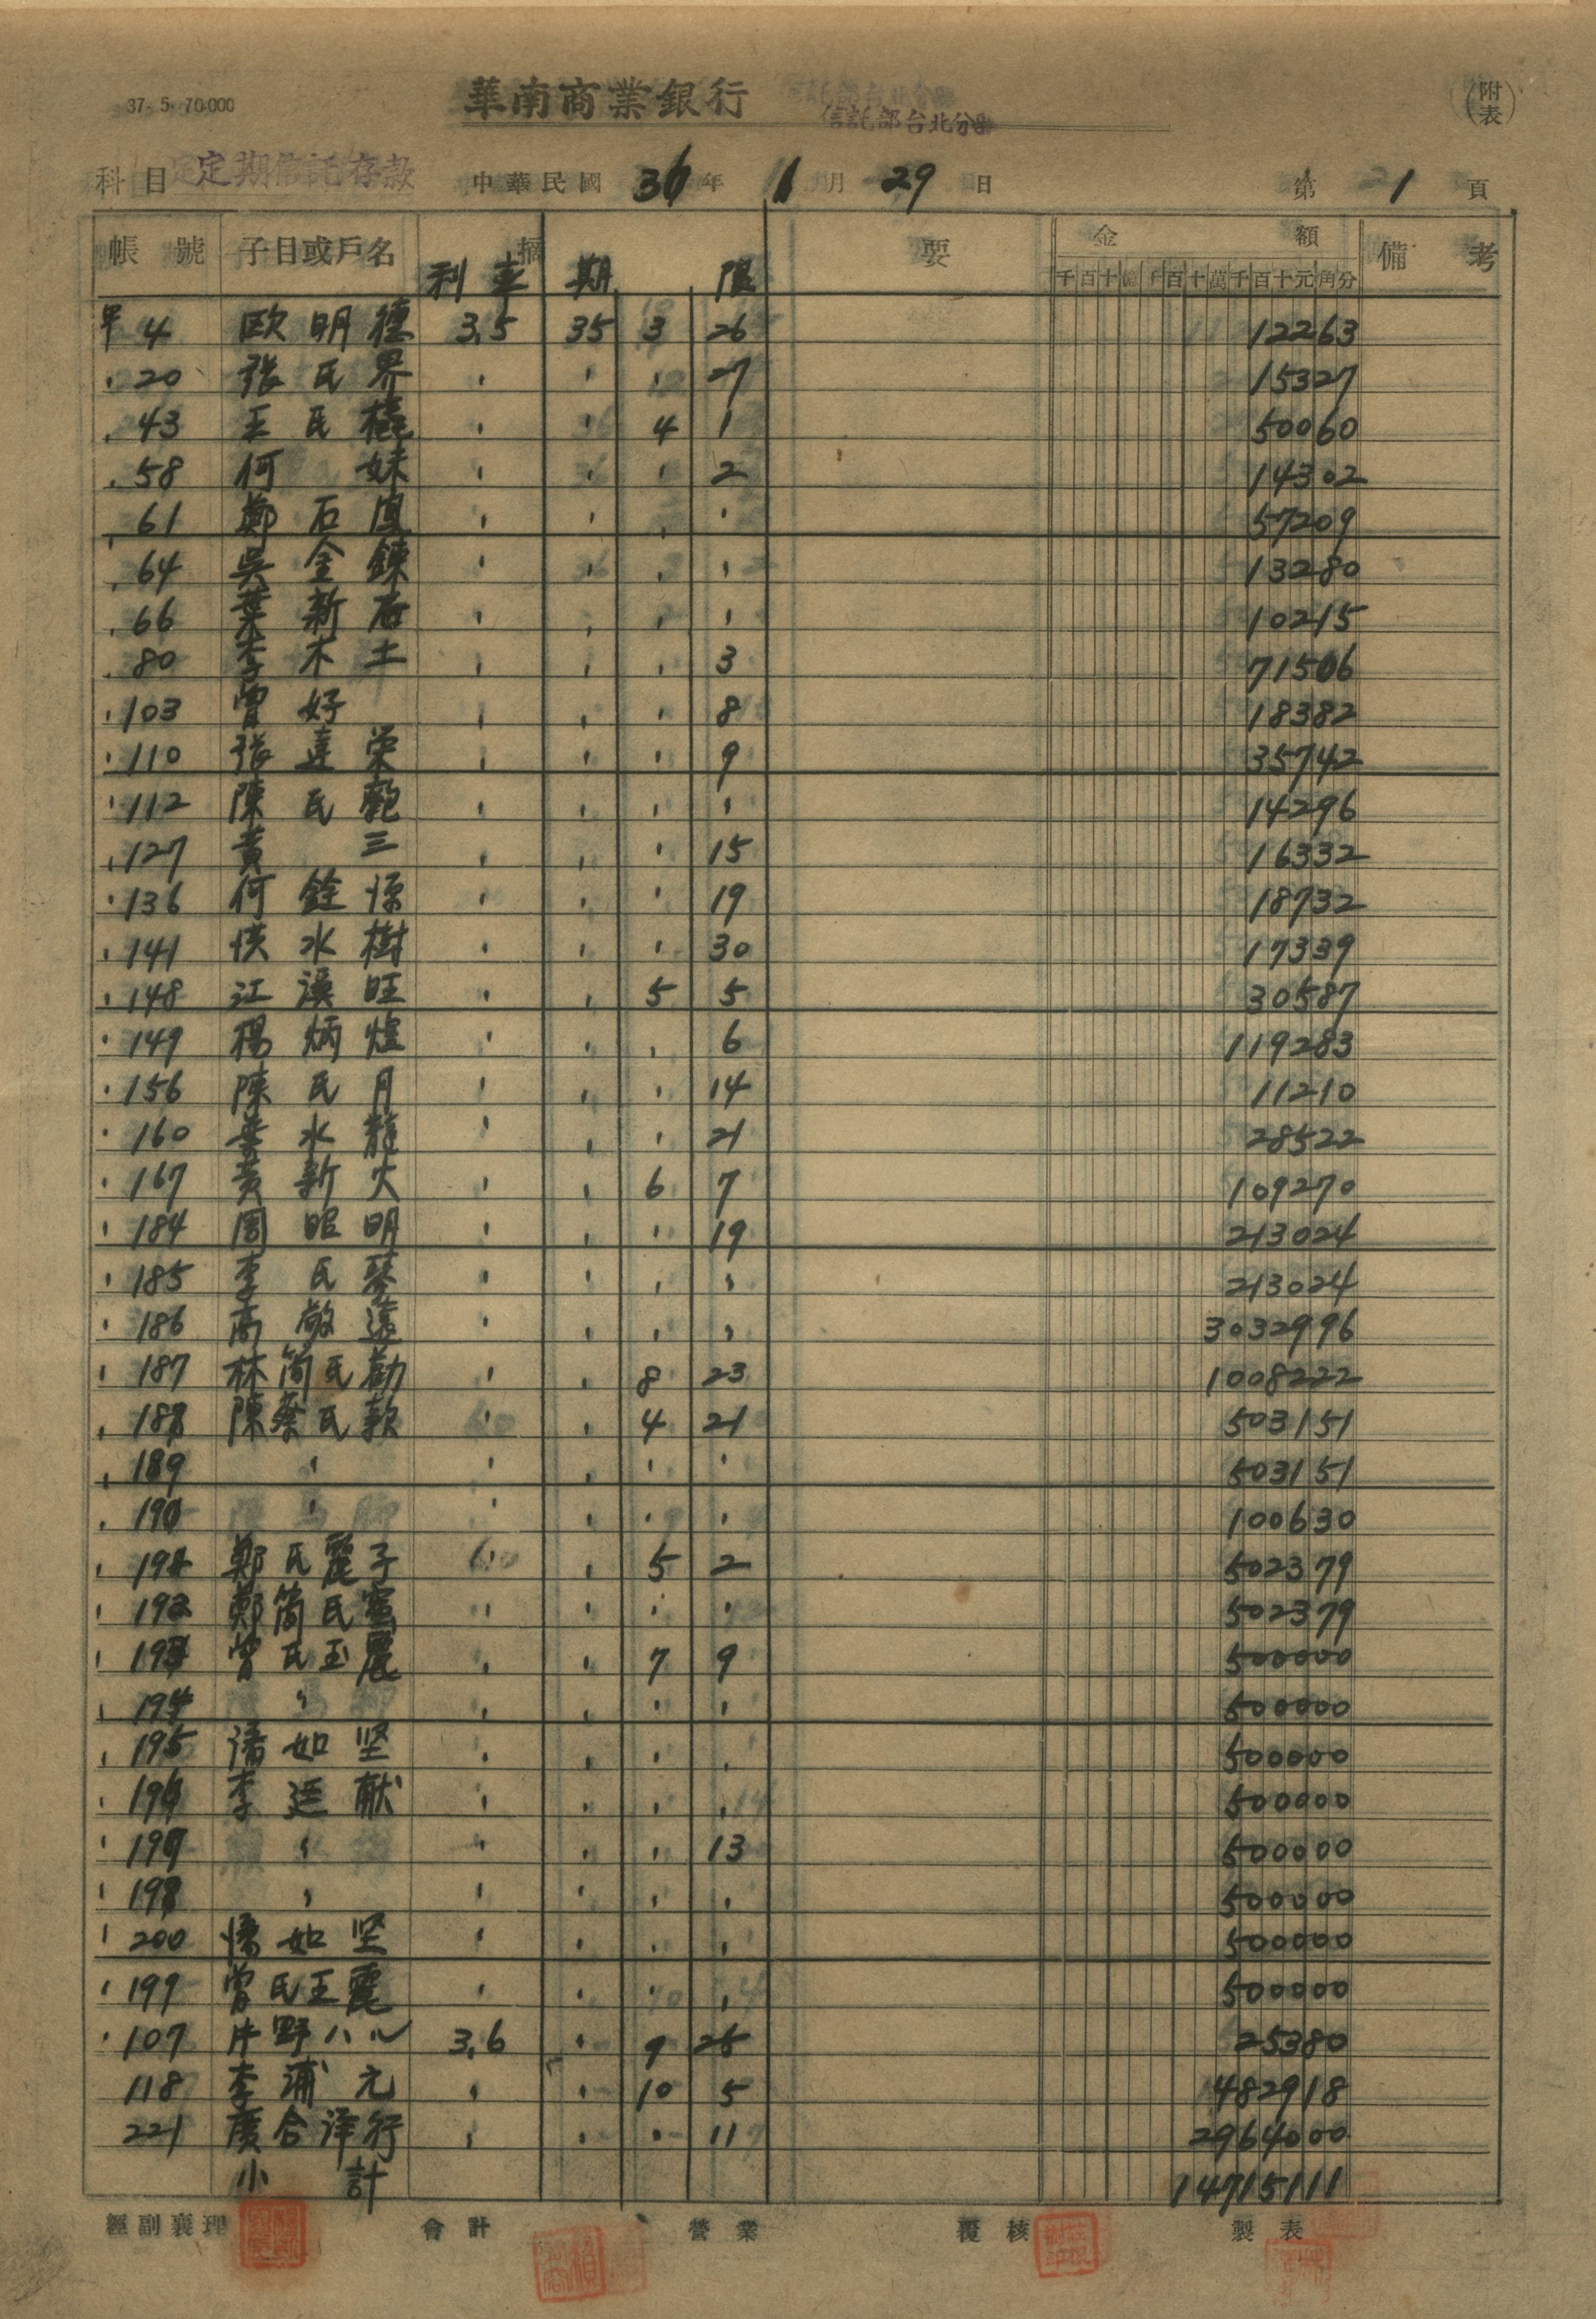 37-5-70.000
華南商業銀行 信託部台北分部
(附表)
科目 定期信託存款 中華民國 36年 1月 29日 第 1 頁
帳號 子目或戶名 摘要 金額 備考
利率 期限 千百十億千百十萬千百十元角分
甲 4 欧明德 3.5 35 3 26 12263
, 20 張氏界 , , , 27 15327
, 43 王氏 , , 4 1 50060
, 58 何妹 , , , 2 14302
, 61 鄭石 , , , , 57209
, 64 吳金鍊 , , , , 13280
, 66 葉新 , , , , 10215
, 80 李木土 , , , 3 71506
, 103 曾好 , , , 8 18382
, 110 張達榮 , , , 9 35742
, 112 陳氏 , , , , 14296
, 127 黃三 , , , 15 16332
, 136 何銓源 , , , 19 18732
, 141 洪水樹 , , , 30 17339
, 148 江溪旺 , , 5 5 30587
, 149 楊炳煌 , , , 6 119283
, 156 陳氏月 , , , 14 11210
, 160 葉水龍 , , , 21 28522
, 167 黃新火 , , 6 7 109270
, 184 周昭明 , , , 19 213024
, 185 李氏琴 , , , , 213024
, 186 高敬遠 , , , , 3032996
, 187 林簡氏勸 , , 8 23 1008222
, 188 陳蔡氏款 , , 4 21 503151
, 189 , , , , , 503151
, 190 , , , , , 100630
, 191 鄭氏麗子 , , 5 2 502379
, 192 鄭簡氏蜜 , , , , 502379
, 193 曾氏玉麗 , , 7 9 500000
, 194 , , , , , 500000
, 195 潘如坚 , , , , 500000
, 196 李廷献 , , , , 500000
, 197 , , , , 13 500000
, 198 , , , , , 500000
, 200 潘如坚 , , , , 500000
, 199 曾氏玉麗 , , , , 500000
, 107 片野ハル 3.6 , 9 25 25380
118 李浦元 , , 10 5 482918
221 廣合洋行 , , , 11 2964000
小計 14715111
經副襄理 會計 營業 覆核 製表